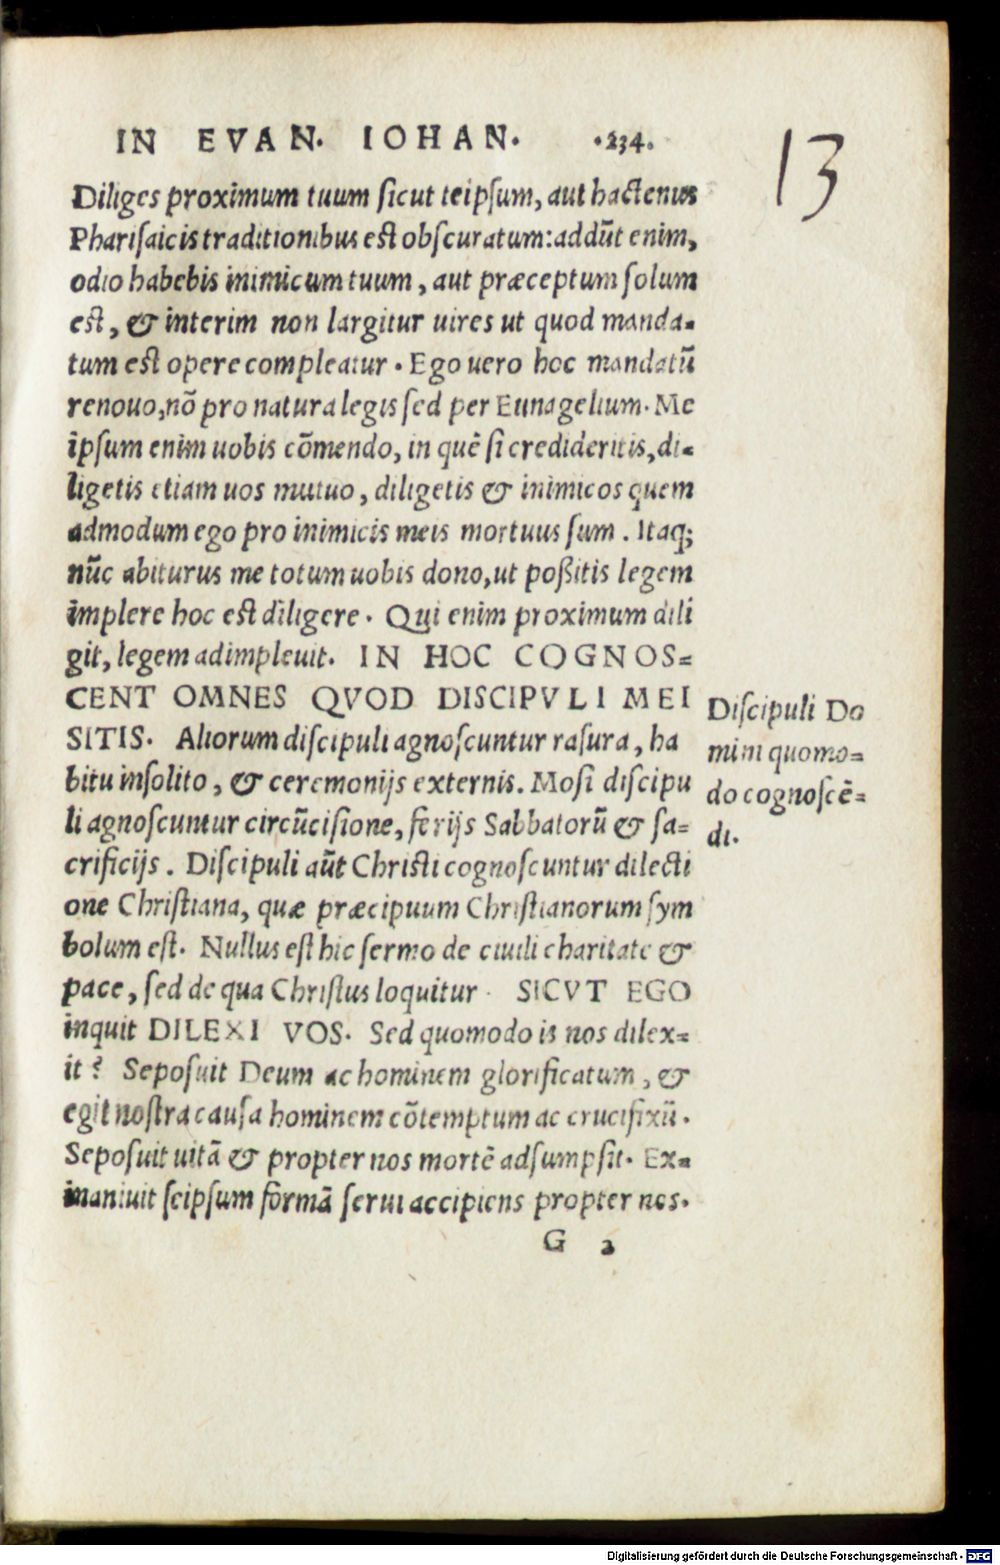 IN EVAN. IOHAN. .234.
13
Diliges proximum tuum sicut teipsum, aut hactenus
Pharisaicis traditionibus est obscuratum: addūt enim,
odio habebis inimicum tuum, aut præceptum solum
est, & interim non largitur uires ut quod manda-
tum est opere compleatur. Ego uero hoc mandatū
renouo, nō pro natura legis sed per Eunagelium. Me
ipsum enim uobis cōmendo, in quē si credideritis, di-
ligetis etiam uos mutuo, diligetis & inimicos quem
admodum ego pro inimicis meis mortuus sum. Itaq;
nūc abiturus me totum uobis dono, ut poßitis legem
implere hoc est diligere. Qui enim proximum dili
git, legem adimpleuit. IN HOC COGNOS=
CENT OMNES QVOD DISCIPVLI MEI
SITIS. Aliorum discipuli agnoscuntur rasura, ha
bitu insolito, & ceremonijs externis. Mosi discipu
li agnoscuntur circūcisione, ferijs Sabbatorū & sa=
crificijs. Discipuli aūt Christi cognoscuntur dilecti
one Christiana, quæ præcipuum Christianorum sym
bolum est. Nullus est hic sermo de ciuili charitate &
pace, sed de qua Christus loquitur. SICVT EGO
inquit DILEXI VOS. Sed quomodo is nos dilex=
it? Seposuit Deum ac hominem glorificatum, &
egit nostra causa hominem cōtemptum ac crucifixū.
Seposuit uitā & propter nos mortē adsumpsit. Ex-
inaniuit seipsum formā serui accipiens propter nos.
G 2
Discipuli Do
mini quomo=
do cognoscē=
di.
Digitalisierung gefördert durch die Deutsche Forschungsgemeinschaft - DFG